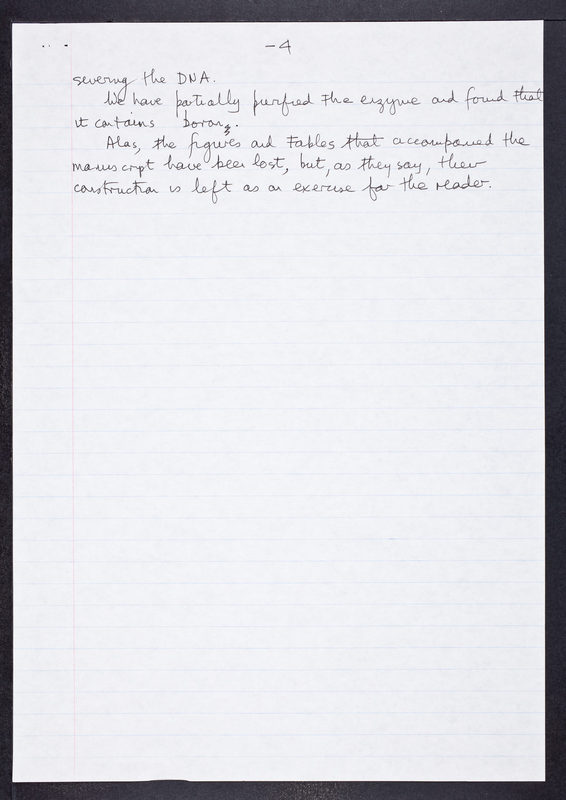 -4
severing the DNA.
We have partially purified the enzyme and found that
it contains boron.
Alas, the figures and tables that accompanied the
manuscript have been lost, but, as they say, their
construction is left as an exercise for the reader.